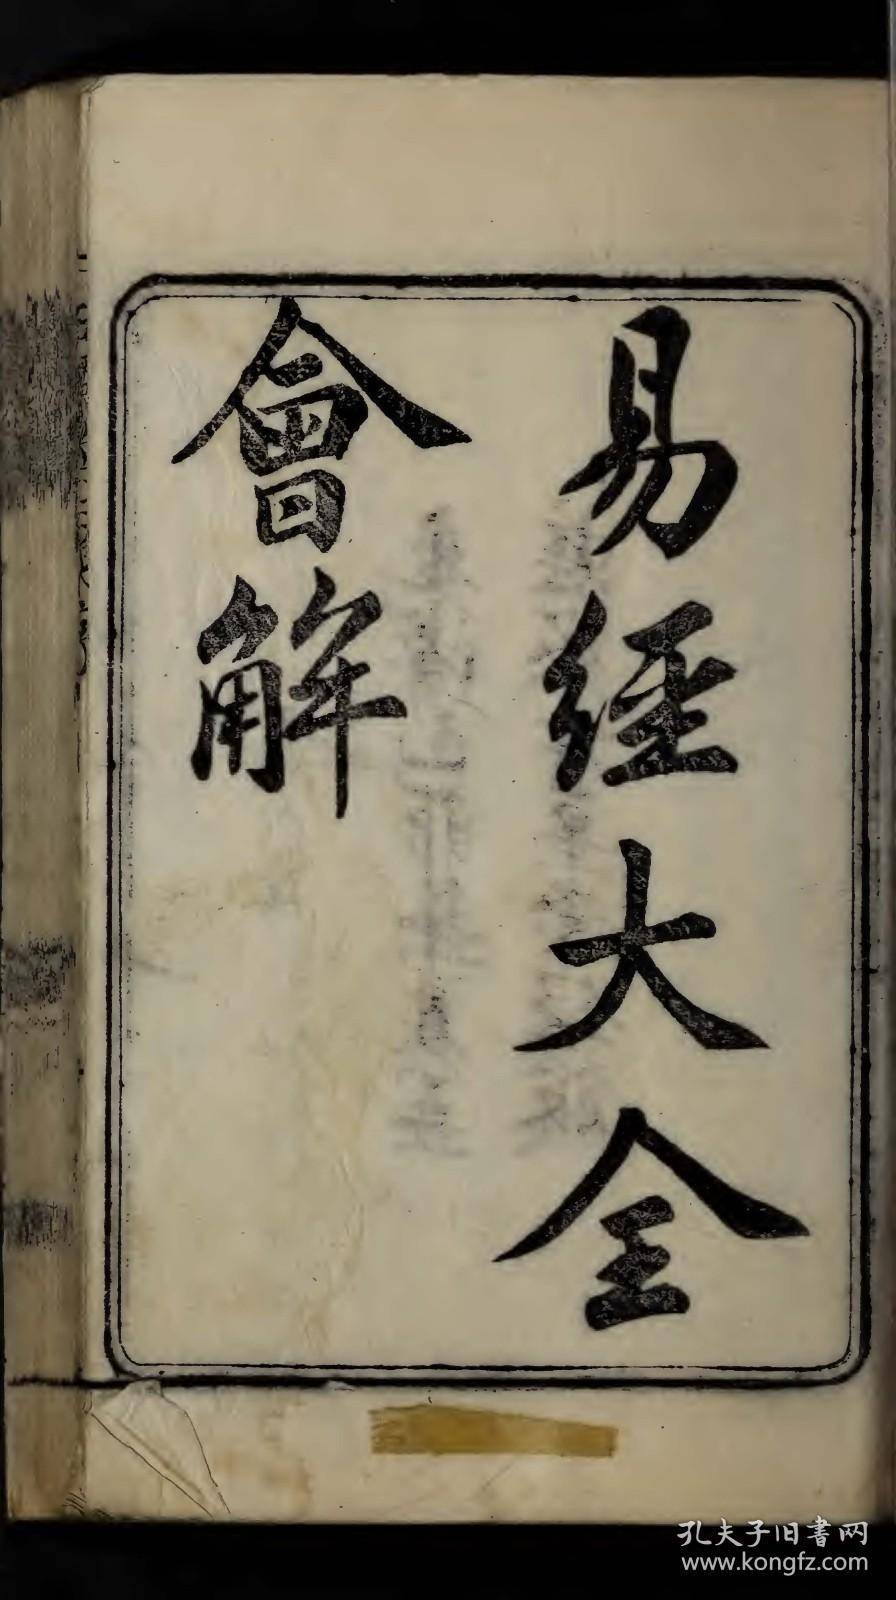 易經大全
會解
孔夫子旧書网
www.kongfz.com